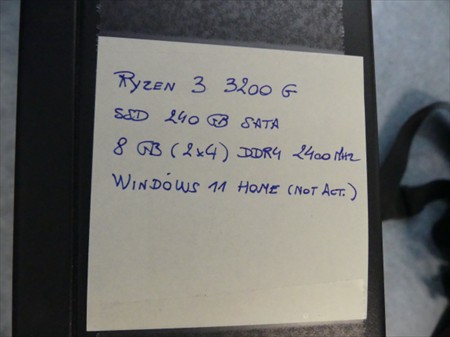 Ryzen 3 3200 G
SSD 240 GB SATA
8 GB (2x4) DDR4 2400 MHz
Windows 11 Home (Not Act.)